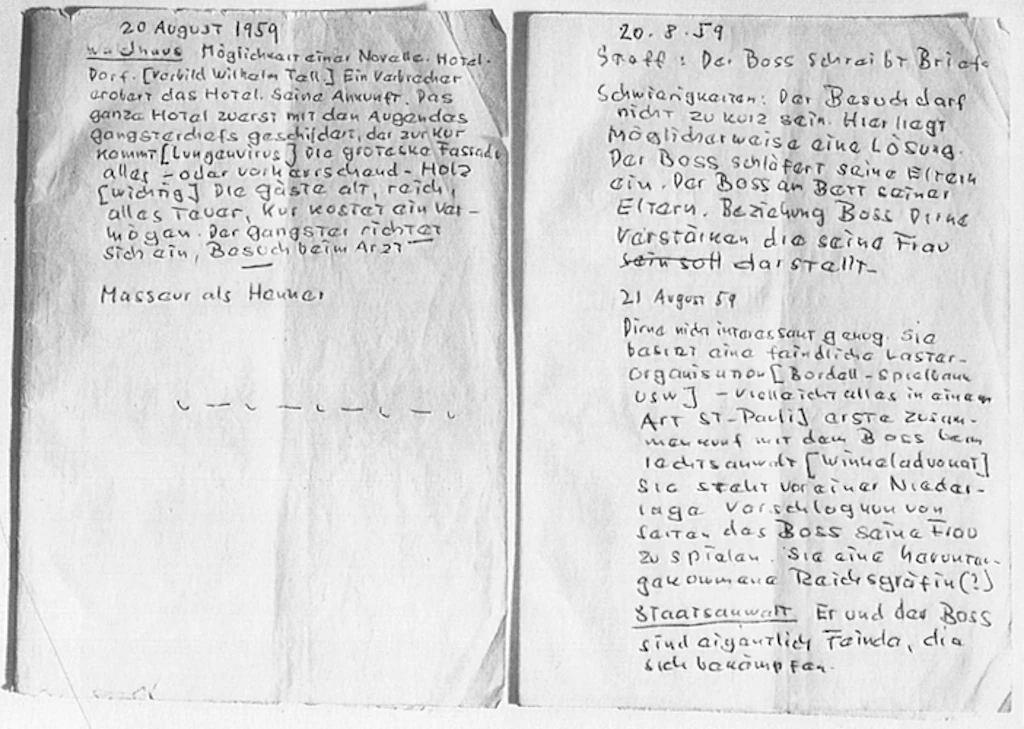 20 August 1959
Waldhaus Möglichkeit einer Novelle. Hotel.
Dorf. [Vorbild Wilhelm Tell.] Ein Verbrecher
erobert das Hotel. Seine Ankunft. Das
ganze Hotel zuerst mit den Augen des
gangsterchefs geschildert, der zur Kur
kommt [Lungenvirus] Die groteske Fassade
alles - oder vorherrschend - Holz
[wichtig] Die Gäste alt, reich,
alles teuer, Kur kostet ein Ver-
mögen. Der Gangster richtet
sich ein, Besuch beim Arzt
Masseur als Henker
20. 8. 59
Stoff: Der Boss schreibt Briefe
Schwierigkeiten: Der Besuch darf
nicht zu kurz sein. Hier liegt
möglicherweise eine Lösung.
Der Boss schläfert seine Eltern
ein. Der Boss am Bett seiner
Eltern. Beziehung Boss Dirne
verstärken die seine Frau
sein soll darstellt.
21 August 59
Dirne nicht interessant genug. Sie
besitzt eine feindliche Laster-
organisation [Bordell - Spielbank
usw] - vielleicht alles in einem
Art St-Pauli] erste Zusam-
menkunf mit dem Boss beim
rechtsanwalt [Winkeladvokat]
Sie steht vor einer Nieder-
lage Vorschlag von
seiten des Boss seine Frau
zu spielen. Sie eine herunter-
gekommene Reichsgräfin (?)
Staatsanwalt Er und der Boss
sind eigentlich Feinde, die
sich bekämpfen.